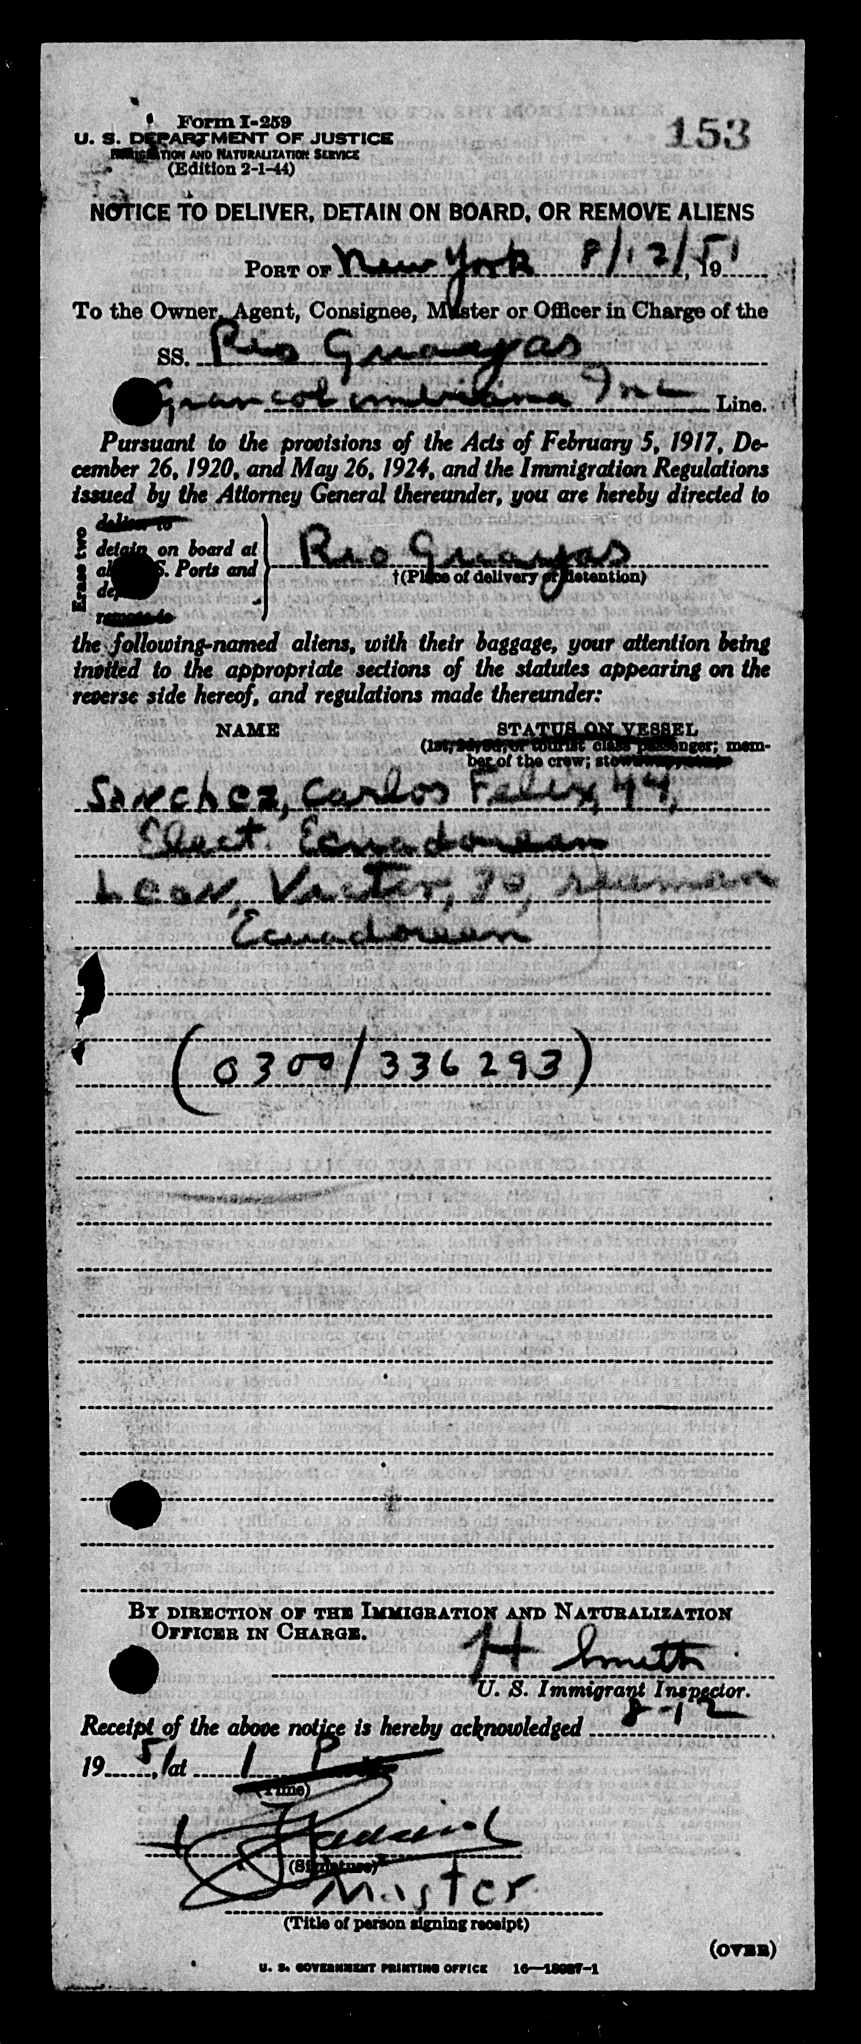 Form I-259
153
U. S. DEPARTMENT OF JUSTICE
IMMIGRATION AND NATURALIZATION SERVICE
(Edition 2-1-44)
NOTICE TO DELIVER, DETAIN ON BOARD, OR REMOVE ALIENS
PORT OF New York 8/12/51, 19
To the Owner, Agent, Consignee, Master or Officer in Charge of the
SS. Rio Guayas
Grancolombiana Inc Line.
Pursuant to the provisions of the Acts of February 5, 1917, De-
cember 26, 1920, and May 26, 1924, and the Immigration Regulations
issued by the Attorney General thereunder, you are hereby directed to
Erase two
deliver to
detain on board at
all U. S. Ports and
Rio Guayas
†(Place of delivery or detention)
remove to
the following-named aliens, with their baggage, your attention being
invited to the appropriate sections of the statutes appearing on the
reverse side hereof, and regulations made thereunder:
NAME STATUS ON VESSEL
(1st, 2d, 3d, or tourist class passenger; mem-
ber of the crew;
Sanchez, Carlos Felix, 44,
Elect. Ecuadorean
Leon, Victor, 30, seaman
Ecuadorean
(0300/336293)
BY DIRECTION OF THE IMMIGRATION AND NATURALIZATION
OFFICER IN CHARGE.
H Smith
U. S. Immigrant Inspector.
Receipt of the above notice is hereby acknowledged 8-12
19 51, at 1 P
(Time)
(Signature)
Master
(Title of person signing receipt)
(OVER)
U. S. GOVERNMENT PRINTING OFFICE 16—13927-1